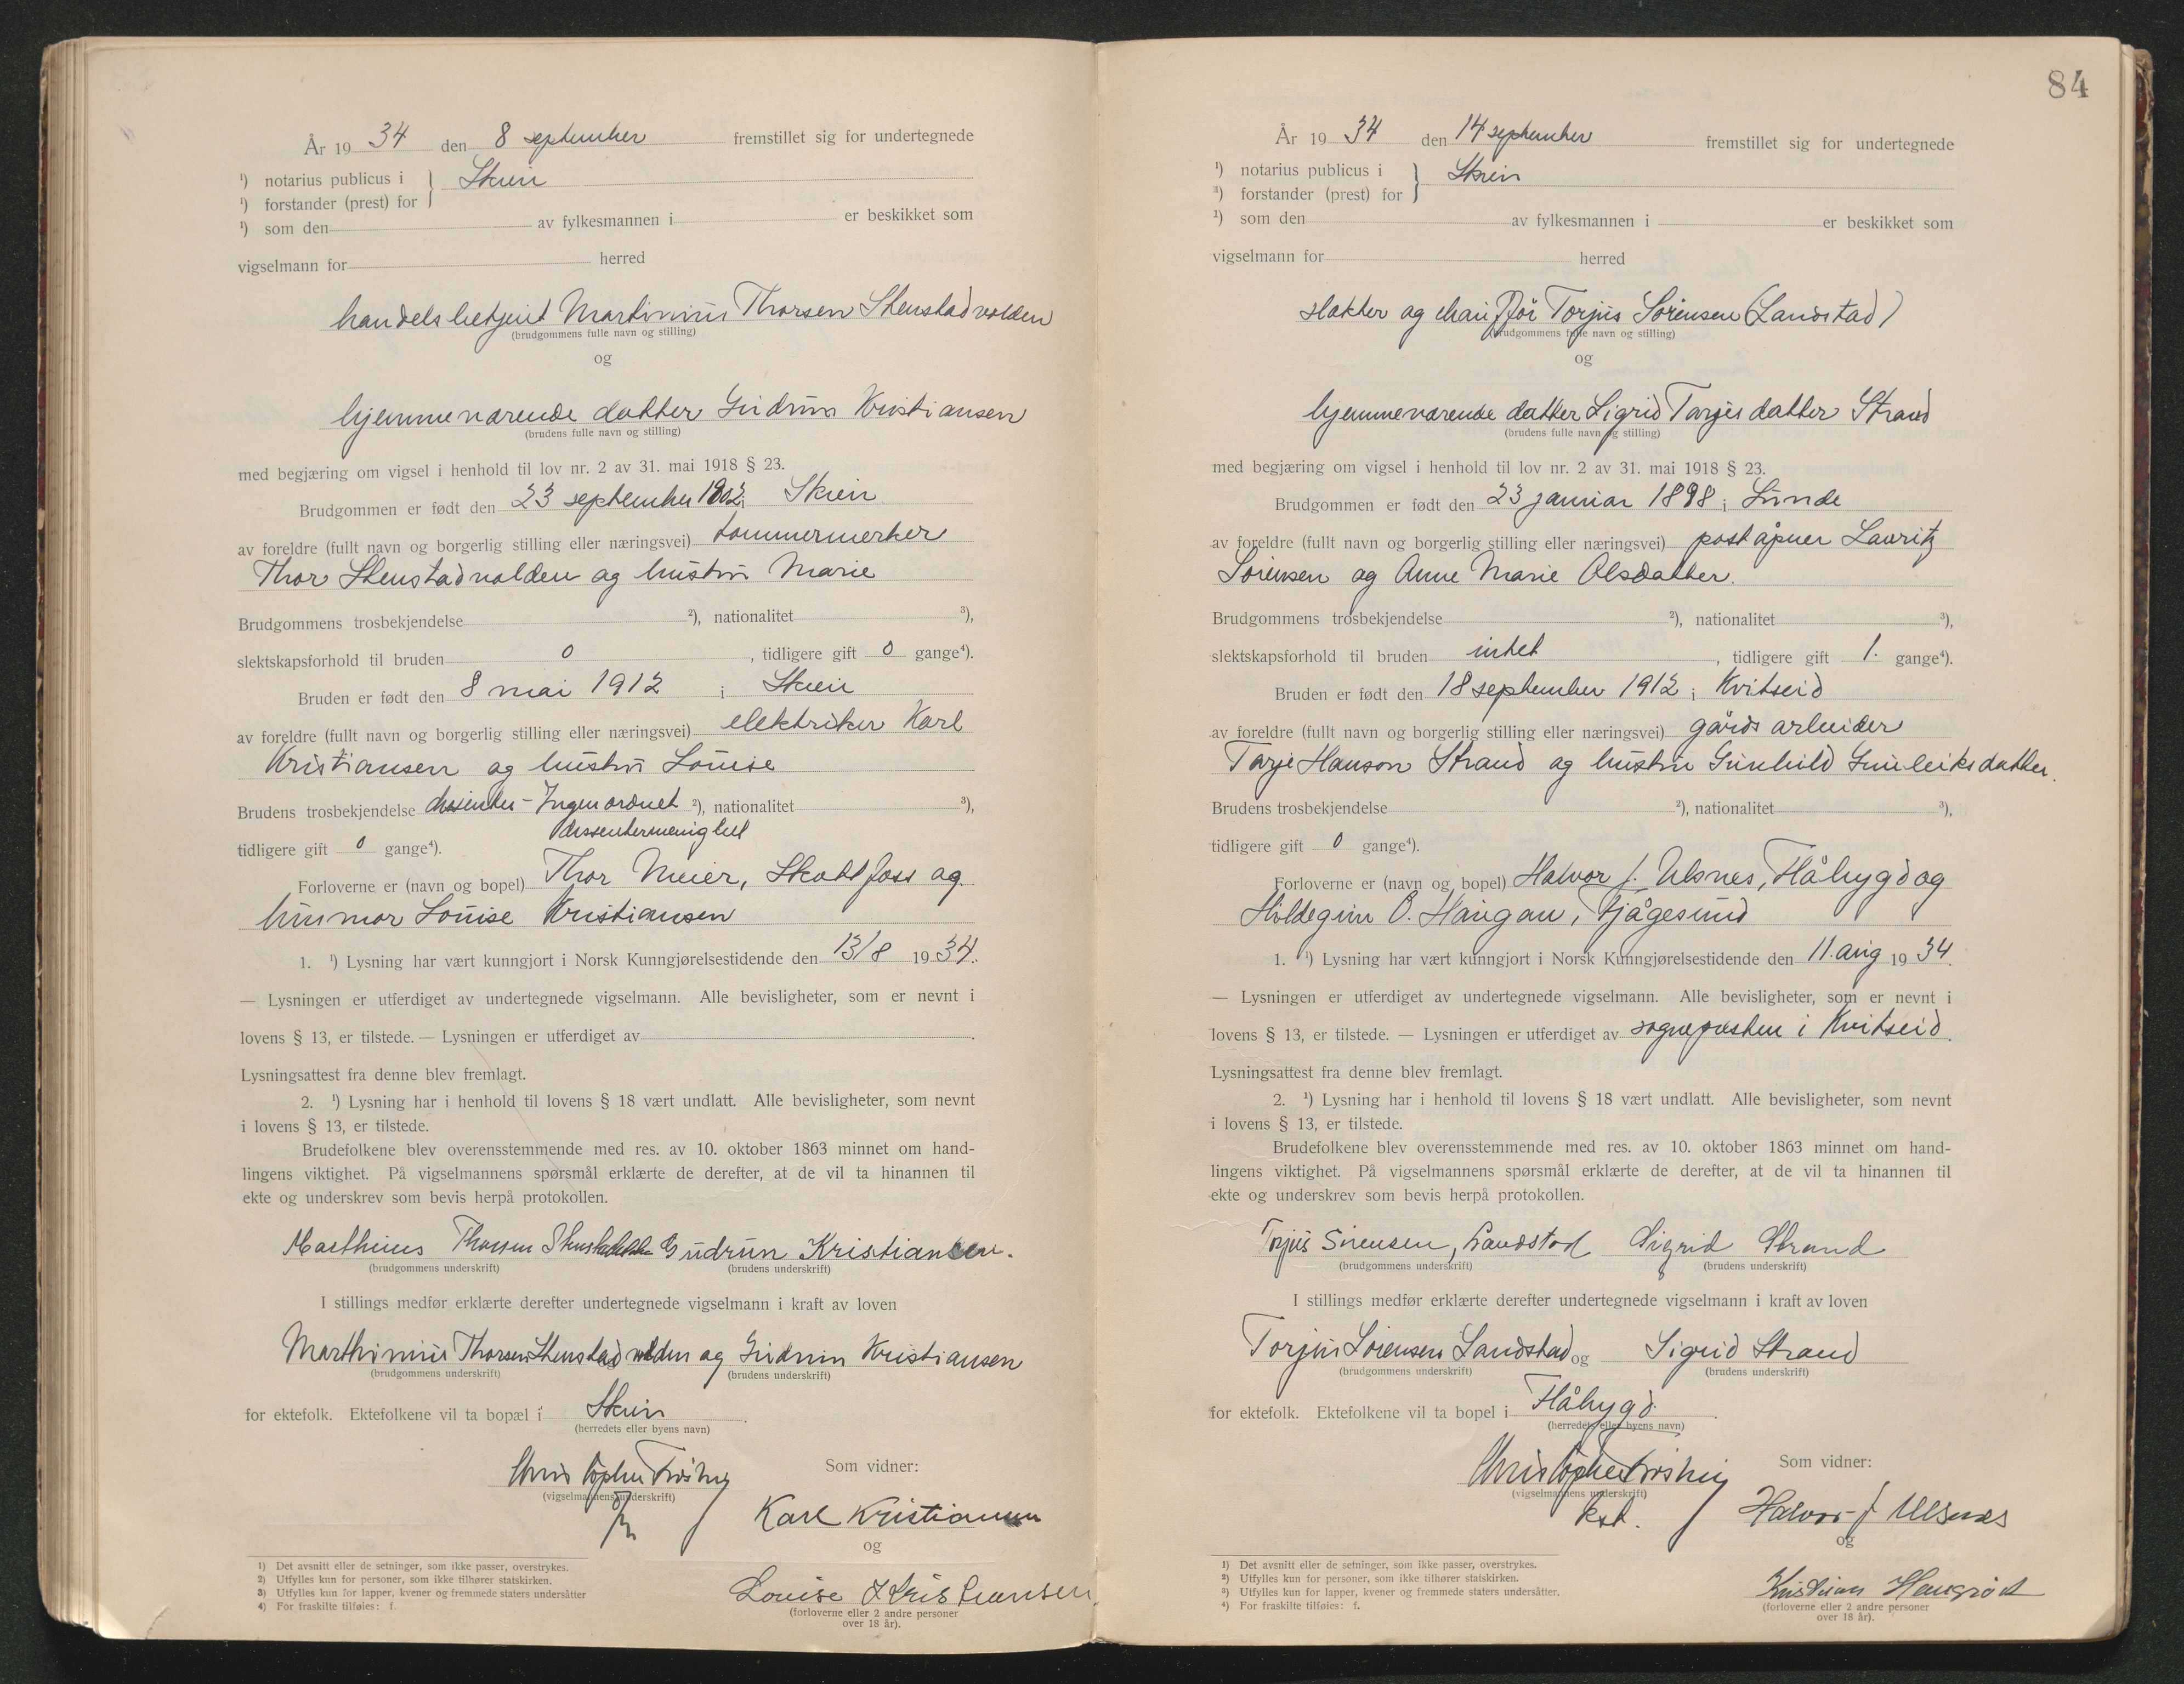 År 19 34 den 8 september fremstillet sig for undertegnede
¹) notarius publicus i } Skien
¹) forstander (prest) for
¹) som den av fylkesmannen i er beskikket som
vigselmann for herred
handelsbetjent Martinius Thorsen Stenstadvolden
(brudgommens fulle navn og stilling)
og
hjemmeværende datter Gudrun Kristiansen
(brudens fulle navn og stilling)
med begjæring om vigsel i henhold til lov nr. 2 av 31. mai 1918 § 23.
Brudgommen er født den 23 september 1902 i Skien
av foreldre (fullt navn og borgerlig stilling eller næringsvei) tømmermerker
Thor Stenstadvolden og hustru Marie
Brudgommens trosbekjendelse ²), nationalitet ³),
slektskapsforhold til bruden 0, tidligere gift 0 gange⁴).
Bruden er født den 8 mai 1912 i Skien
av foreldre (fullt navn og borgerlig stilling eller næringsvei) elektriker Karl
Kristiansen og hustru Louise
Brudens trosbekjendelse dissenter - Ingen ordnet ²), nationalitet ³),
dissentermenighet
tidligere gift 0 gange⁴).
Forloverne er (navn og bopel) Thor Meier, Skotfoss og
husmor Louise Kristiansen
1. ¹) Lysning har vært kunngjort i Norsk Kunngjørelsestidende den 13/8 1934.
— Lysningen er utferdiget av undertegnede vigselmann. Alle bevisligheter, som er nevnt i
lovens § 13, er tilstede. — Lysningen er utferdiget av .
Lysningsattest fra denne blev fremlagt.
2. ¹) Lysning har i henhold til lovens § 18 vært undlatt. Alle bevisligheter, som nevnt
i lovens § 13, er tilstede.
Brudefolkene blev overensstemmende med res. av 10. oktober 1863 minnet om hand-
lingens viktighet. På vigselmannens spørsmål erklærte de derefter, at de vil ta hinannen til
ekte og underskrev som bevis herpå protokollen.
Marthinius Thorsen Gudrun Kristiansen.
(brudgommens underskrift) (brudens underskrift)
I stillings medfør erklærte derefter undertegnede vigselmann i kraft av loven
Marthinius Thorsen Stenstadvolden og Gudrun Kristiansen
(brudgommens underskrift) (brudens underskrift)
for ektefolk. Ektefolkene vil ta bopæl i Skien.
(herredets eller byens navn)
Som vidner:
(vigselmannens underskrift)
Karl Kristiansen
og
Louise Kristiansen
(forloverne eller 2 andre personer
over 18 år).
1) Det avsnitt eller de setninger, som ikke passer, overstrykes.
2) Utfylles kun for personer, som ikke tilhører statskirken.
3) Utfylles kun for lapper, kvener og fremmede staters undersåtter
4) For fraskilte tilføies: f.
84
År 19 34 den 14 september fremstillet sig for undertegnede
¹) notarius publicus i } Skien
³) forstander (prest) for
¹) som den av fylkesmannen i er beskikket som
vigselmann for herred
slakter og chauffør Torjus Sørensen (Landstad)
(brudgommens fulle navn og stilling)
og
hjemmeværende datter Sigrid Tarjeisdatter Strand
(brudens fulle navn og stilling)
med begjæring om vigsel i henhold til lov nr. 2 av 31. mai 1918 § 23.
Brudgommen er født den 23 januar 1898 i Lunde
av foreldre (fullt navn og borgerlig stilling eller næringsvei) poståpner Lauritz
Sørensen og Anne Marie Olsdatter.
Brudgommens trosbekjendelse ²), nationalitet ³),
slektskapsforhold til bruden intet, tidligere gift 1. gange⁴).
Bruden er født den 18 september 1912 i Kvitseid
av foreldre (fullt navn og borgerlig stilling eller næringsvei) gårdsarbeider
Tarje Hanson Strand og hustru Gunhild Gunleiksdatter.
Brudens trosbekjendelse ²), nationalitet ³),
tidligere gift 0 gange⁴).
Forloverne er (navn og bopel) Halvor J. Ulsnes, Flåbygd og
Hildegunn O. Haugan, Fjågesund
1. ¹) Lysning har vært kunngjort i Norsk Kunngjørelsestidende den 11. aug 1934.
— Lysningen er utferdiget av undertegnede vigselmann. Alle bevisligheter, som er nevnt i
lovens § 13, er tilstede. — Lysningen er utferdiget av sognepresten i Kvitseid.
Lysningsattest fra denne blev fremlagt.
2. ¹) Lysning har i henhold til lovens § 18 vært undlatt. Alle bevisligheter, som nevnt
i lovens § 13, er tilstede.
Brudefolkene blev overensstemmende med res. av 10. oktober 1863 minnet om hand-
lingens viktighet. På vigselmannens spørsmål erklærte de derefter, at de vil ta hinannen til
ekte og underskrev som bevis herpå protokollen.
Torjus Sørensen, Landstad Sigrid Strand
(brudgommens underskrift) (brudens underskrift)
I stillings medfør erklærte derefter undertegnede vigselmann i kraft av loven
Torjus Sørensen Landstad og Sigrid Strand
(brudgommens underskrift) (brudens underskrift)
for ektefolk. Ektefolkene vil ta bopel i Flåbygd.
(herredets eller byens navn)
Som vidner:
(vigselmannens underskrift)
kst.
Halvor J Ulsnes
og
Kristian Haugrød
(forloverne eller 2 andre personer
over 18 år).
1) Det avsnitt eller de setninger, som ikke passer, overstrykes.
2) Utfylles kun for personer, som ikke tilhører statskirken.
3) Utfylles kun for lapper, kvener og fremmede staters undersåtter.
4) For fraskilte tilføies: f.